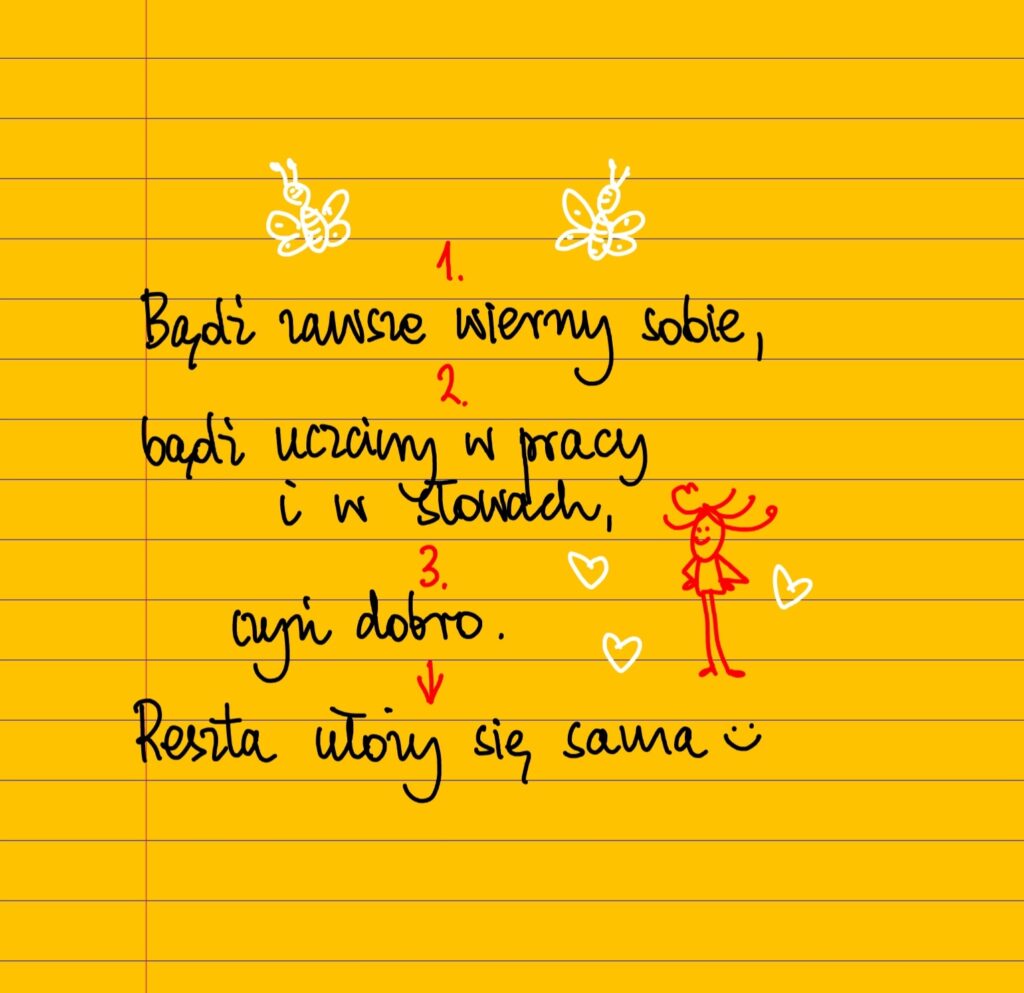 1.
Bądź zawsze wierny sobie,
2.
bądź uczciwy w pracy
i w słowach,
3.
czyń dobro.
↓
Reszta ułoży się sama :)